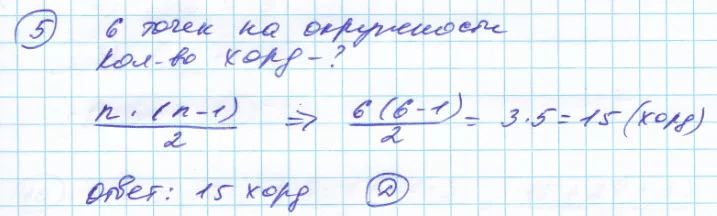 ⑤ 6 точек на окружности
кол-во хорд - ?
n·(n-1)/2 ⇒ 6(6-1)/2 = 3·5 = 15 (хорд)
ответ: 15 хорд Ⓓ